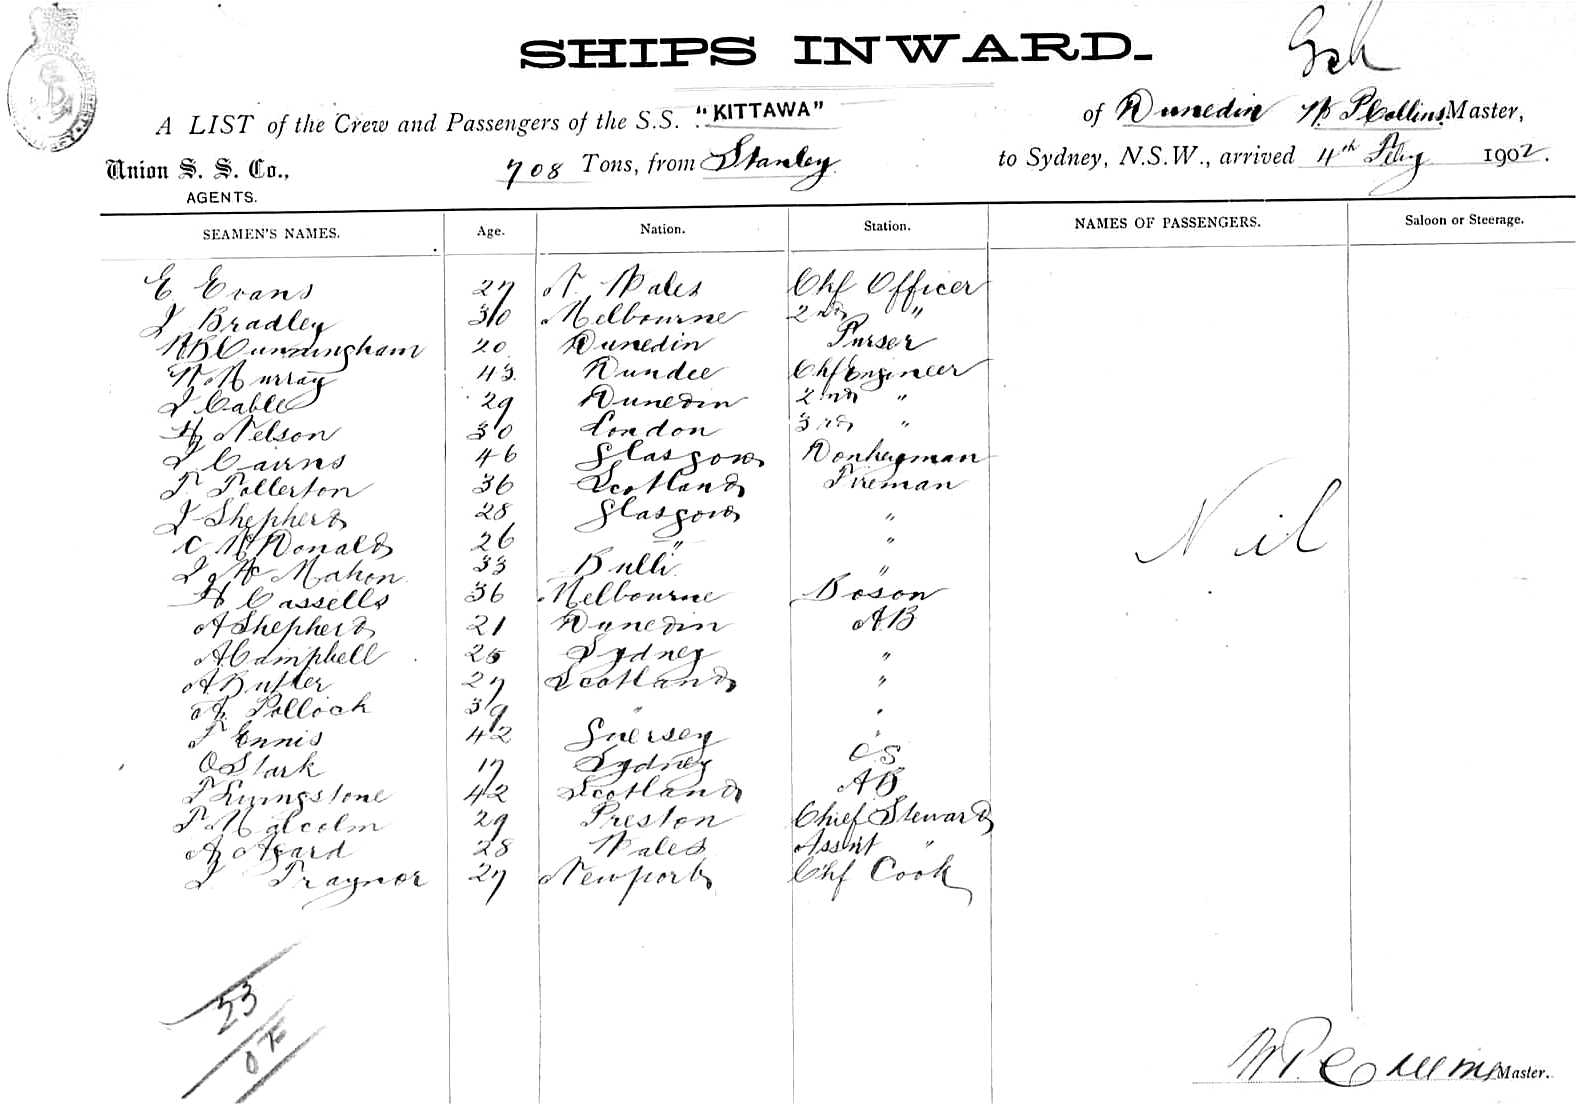 SHIPS INWARD.
A LIST of the Crew and Passengers of the S.S. "KITTAWA" of Dunedin W P Collins Master,
Union S. S. Co., 708 Tons, from Stanley to Sydney, N.S.W., arrived 4th Feby 1902.
AGENTS.
SEAMEN'S NAMES. Age. Nation. Station. NAMES OF PASSENGERS. Saloon or Steerage.
E Evans 27 N. Wales Chf Officer
J Bradley 30 Melbourne 2nd "
W B Cunningham 20 Dunedin Purser
W Murray 43 Dundee Chf Engineer
J Cable 29 Dunedin 2nd "
H Nelson 30 London 3rd "
J Cairns 46 Glasgow Donkeyman
T Tollerton 36 Scotland Fireman
J Shepherd 28 Glasgow "
C McDonald 26 " "
J McMahon 33 Bulli "
Nil
H Cassells 36 Melbourne Boson
A Shepherd 21 Dunedin AB
A Campbell 25 Sydney "
A Butler 27 Scotland "
A Pollock 39 " "
T Ennis 42 Guersey "
O Stark 17 Sydney OS
T Livingstone 42 Scotland AB
T Malcolm 29 Preston Chief Steward
A Agard 28 Wales Assist "
J Traynor 27 Newport Chf Cook
23
W P. Collins Master.